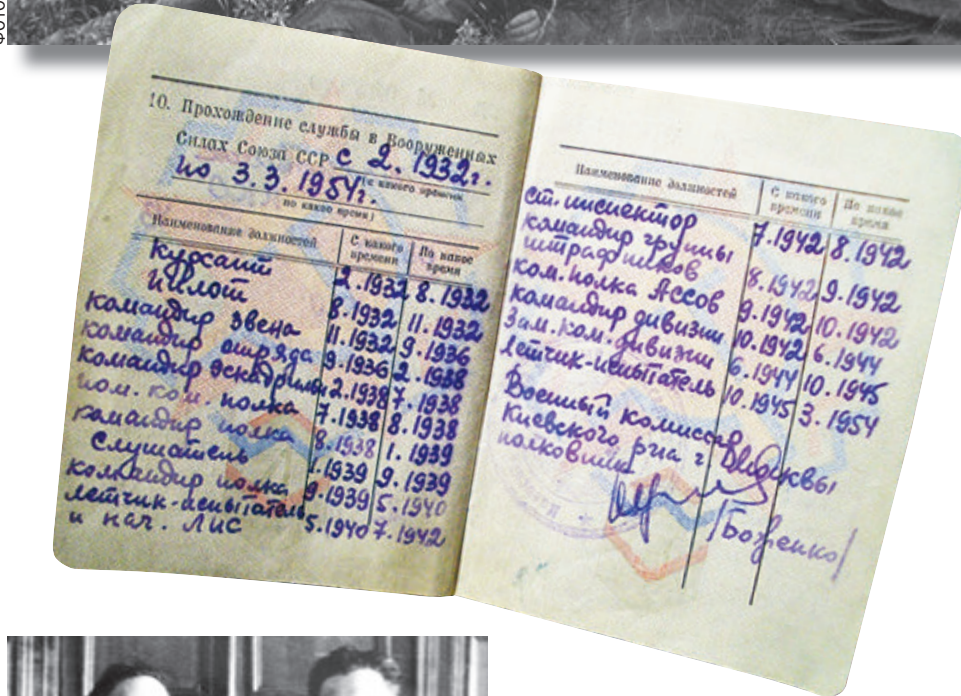 10. Прохождение службы в Вооруженных
Силах Союза ССР с 2.1932г.
(с какого времени
по 3.3.1954г.
по какое время)
Наименование должностей С какого времени По какое время
Курсант 2.1932 8.1932
Пилот 8.1932 11.1932
командир звена 11.1932 9.1936
командир отряда 9.1936 2.1938
командир эскадрильи 2.1938 7.1938
пом. ком. полка 7.1938 8.1938
командир полка 8.1938 1.1939
Слушатель 1.1939 9.1939
командир полка 9.1939 5.1940
летчик-испытатель
и нач. ЛИС 5.1940 7.1942
Наименование должностей С какого времени По какое время
ст. инспектор 7.1942 8.1942
командир группы
штрафников 8.1942 9.1942
ком. полка Ассов 9.1942 10.1942
командир дивизии 10.1942 6.1944
Зам. ком. дивизии 6.1944 10.1945
летчик-испытатель 10.1945 3.1954
Военный комиссар
Киевского рна г. Москвы
полковник
/Боженко/